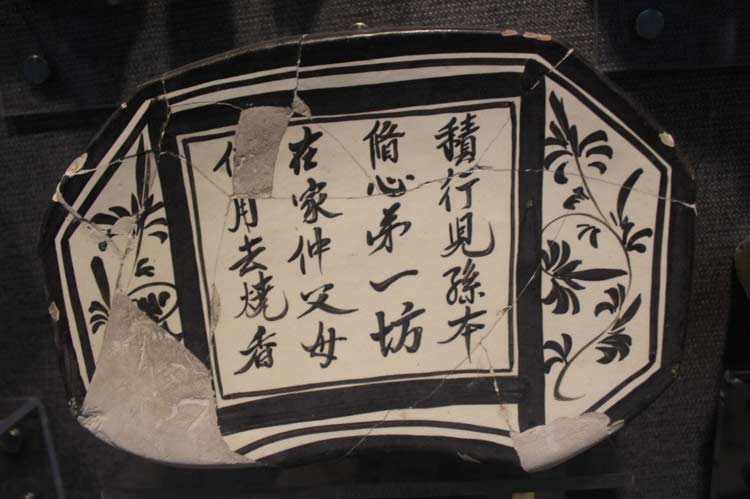 積行見孫本
脩心弟一坊
在家仲父母
用去燒香